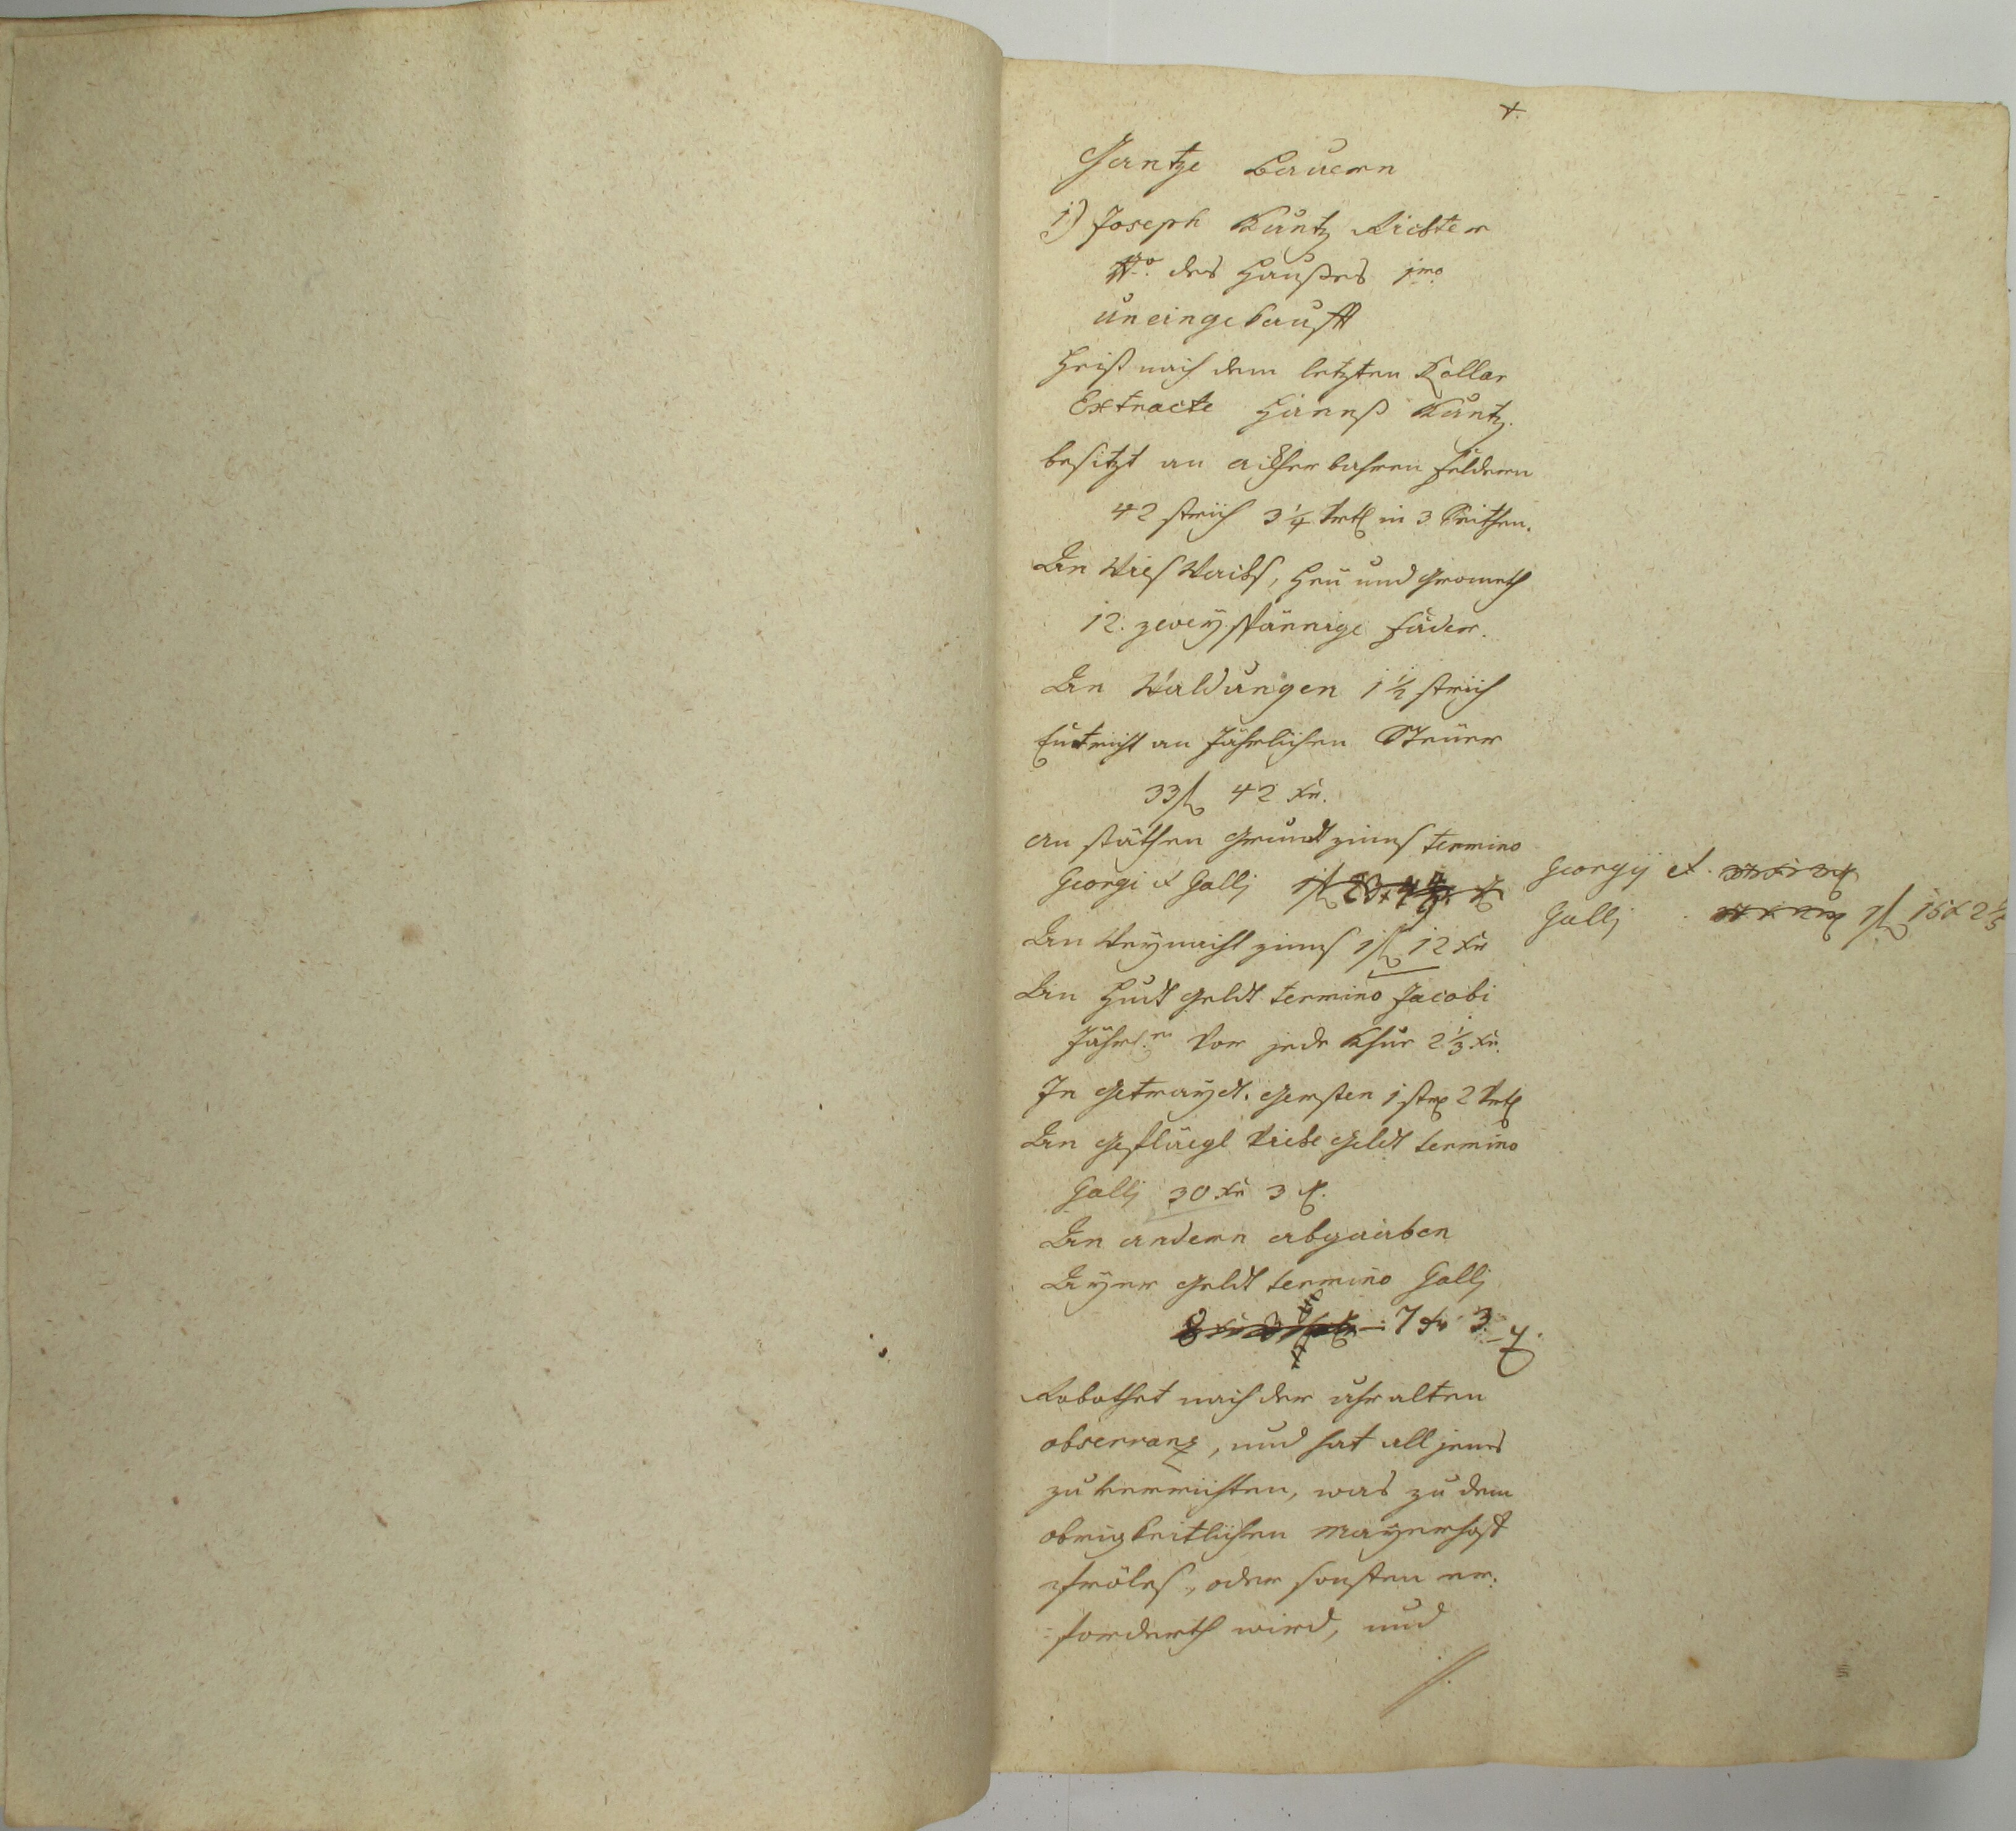 Gantze Bauern
1) Joseph Kuntz Richter
Nro. des Haußes 1mo.
uneingekaufft
Heist nach dem letzten Rollar
Extracte Hannß Kuntz.
besitzt an ackherbahren feldern
42 strich 3 1/4 Vrtl in 3 Seithen.
An Wies Wachs, Heü und Grometh
12. zweyspännige fuder.
An Waldungen 1 1/2 strich
Entricht an Jährlichen Steüer
33 fl 42 xr.
an stäthen Grundtzinns termino
Georgi et Gallj 1 fl
Georgij et
Gallj 1 fl 15 x 2
An Weynacht zinns 1 fl 12 xr
An Hudt geldt termino Jacobi
Jährl. Vor jede Khue 2 1/3 xr.
In Getraydt. Gersten 1 str 2 Vrtl
An Gefluegl Viehe geldt termino
Gallj 30 xr 3 d.
An andern abgaaben
Ayer geldt termino Gallj
7 xr 3 d.
Robothet nach der uhralten
observanz, und hat all jenes
zu verrichten, was zu dem
obrigkeitlichen Mayerhoff
oder sonsten er-
forderth wird, und